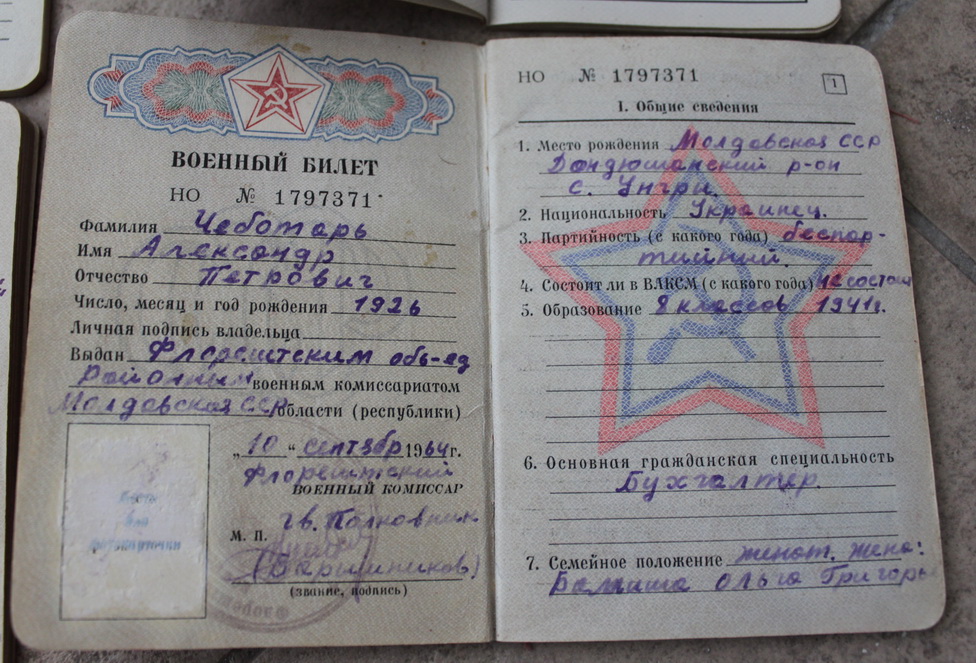 ВОЕННЫЙ БИЛЕТ
НО № 1797371
Фамилия Чеботарь
Имя Александр
Отчество Петрович
Число, месяц и год рождения 1926
Личная подпись владельца
Выдан Флорештским объ-ед
Районным военным комиссариатом
Молдавская ССР области (республики)
„10“ сентябр 1964г.
Флорештский
ВОЕННЫЙ КОМИССАР
гв. Полковник
М. П.
(Барышников)
(звание, подпись)
Место
для
фотокарточки
НО № 1797371
1
I. Общие сведения
1. Место рождения Молдавская ССР
Дондюшанский р-он
с. Унгры.
2. Национальность Украинец.
3. Партийность (с какого года) беспар-
тийный.
4. Состоит ли в ВЛКСМ (с какого года) не состои
5. Образование 8 классов 1941г.
6. Основная гражданская специальность
Бухгалтер.
7. Семейное положение женат. жена:
Ольга Григорь